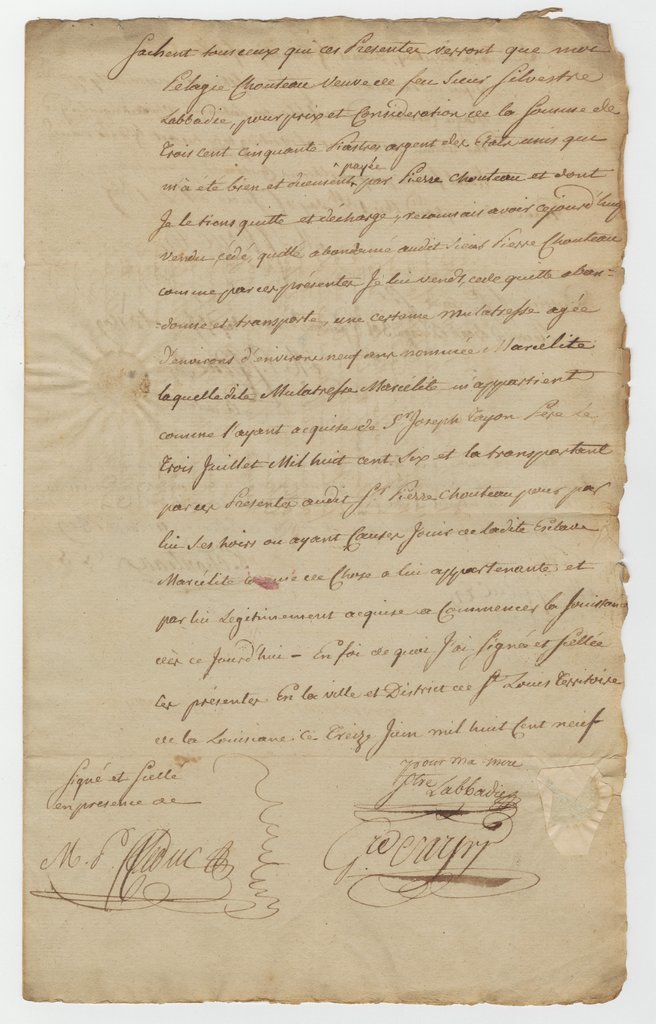 Sachent tous ceux qui ces Presentes verront que moi
Pelagie Chouteau Veuve de feu Sieur Silvestre
Labbadie, pour prix et Consideration de la Somme de
Trois cent cinquante Piastres argent des Etats unis qui
m'a été bien et duement ^ payée par Pierre Chouteau et dont
Je le tiens quitte et décharge, reconnais avoir cejourd'huy
Vendu, cédé, quitté abandonné audit Sieur Pierre Chouteau
comme par ces présentes Je lui vends, cede quitte aban-
-donne et transporte, une certaine mulatresse agée
D'environs d'environs neuf ans nommée Marcélite
laquelle dite Mulatresse Marcélite m'appartient
comme l'ayant acquise de Sr. Joseph Tayon Pere le
Trois Juillet Mil huit cent Six et la transportant
par ces Presentes audit Sr. Pierre Chouteau pour par
lui Ses hoirs ou ayant Causes Jouir de ladite Esclave
Marcélite comme de Chose a lui appartenante et
par lui Legitimement acquise a Commencer la Jouissance
dès ce Jourd'hui - En foi de quoi J'ai Signée et Scellée
Ces présentes En la ville et District de St. Louis Territoire
de la Louisiane. Ce Treize Juin mil huit Cent neuf
Pour ma mere
Stre Labbadie
Signé et Scellé
en présence de
M. P. Leduc